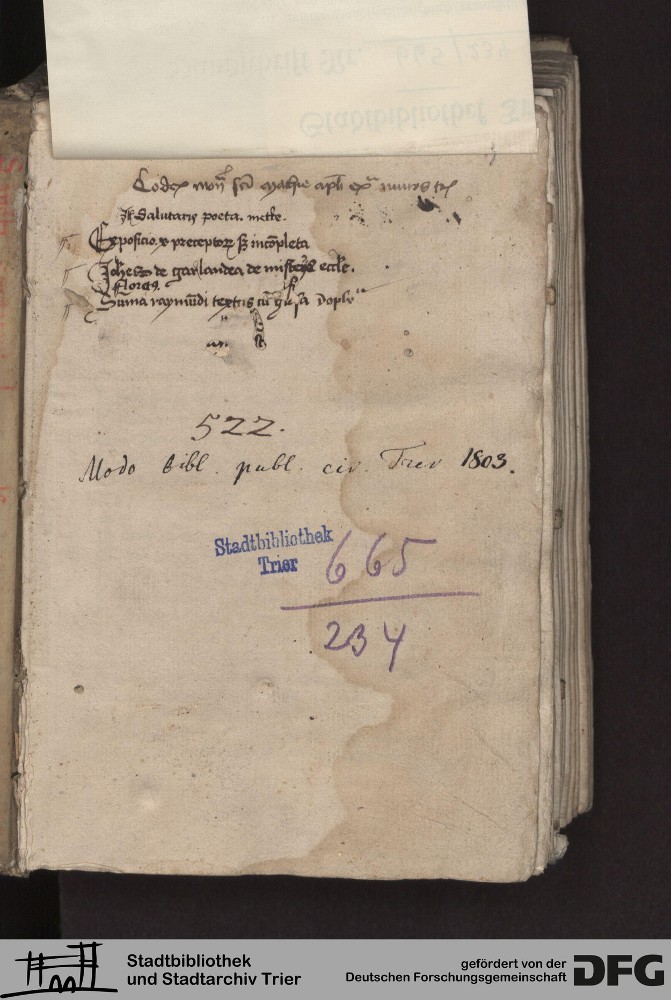 Codex mon sci mathie apli ex muros tr
It Salutaris poeta. metce.
Exposicio x preceptor sz incopleta
Johes de garlandea de misterijs eccle.
Flores
Suma raymudi textus cu glosa
522.
Modo bibl. publ. civ. Trev 1803.
Stadtbibliothek
Trier
665
234
Stadtbibliothek
und Stadtarchiv Trier
gefördert von der
Deutschen Forschungsgemeinschaft
DFG